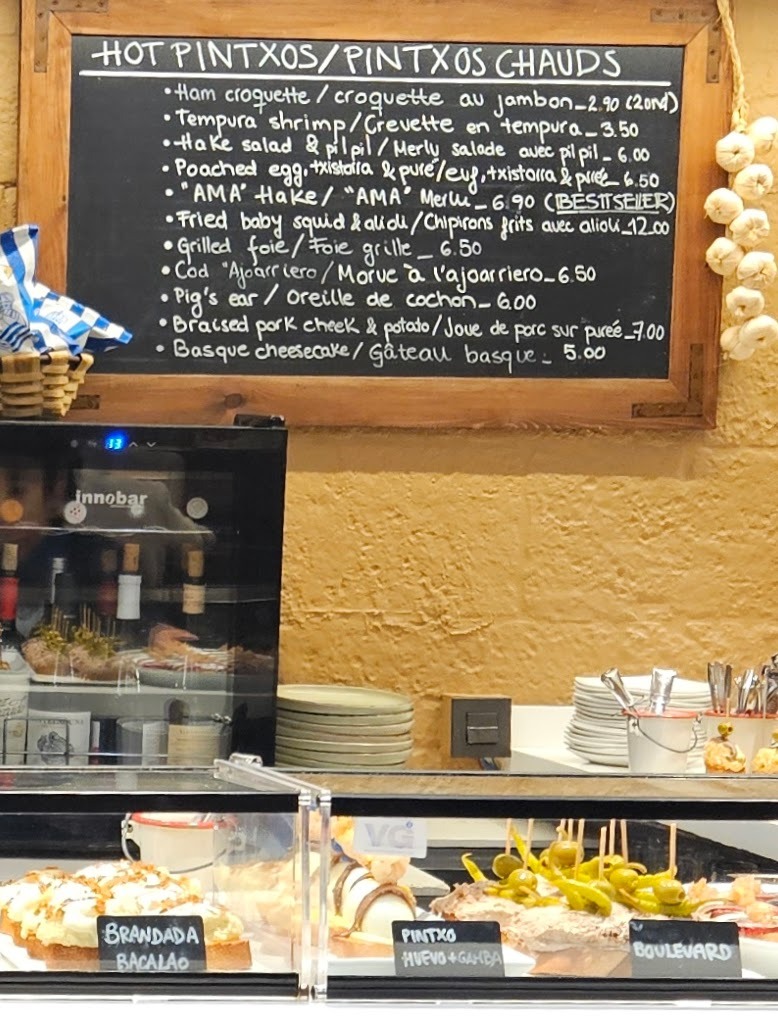 HOT PINTXOS/PINTXOS CHAUDS
• Ham croquette / croquette au jambon_2.90 (2 Uni)
• Tempura shrimp/Crevette en tempura_3.50
• Hake salad & pil pil / Merlu salade avec pil pil_6.00
• Poached egg, txistorra & puré/euf, txistorra & pureé_6.50
• "AMA" Hake/ "AMA" Merlu_6.90 (BESTSELLER)
• Fried baby squid & alioli/Chipirons frits avec alioli_12.00
• Grilled foie/Foie grille_6.50
• Cod "Ajoarriero/Morue à l'ajoarriero_6.50
• Pig's ear / Oreille de cochon_6.00
• Braised pork cheek & potato/Joue de porc sur pureé_7.00
• Basque cheesecake/Gâteau basque_5.00
13
innobar
VG
BRANDADA
BACALAO
PINTXO
HUEVO+GAMBA
BOULEVARD